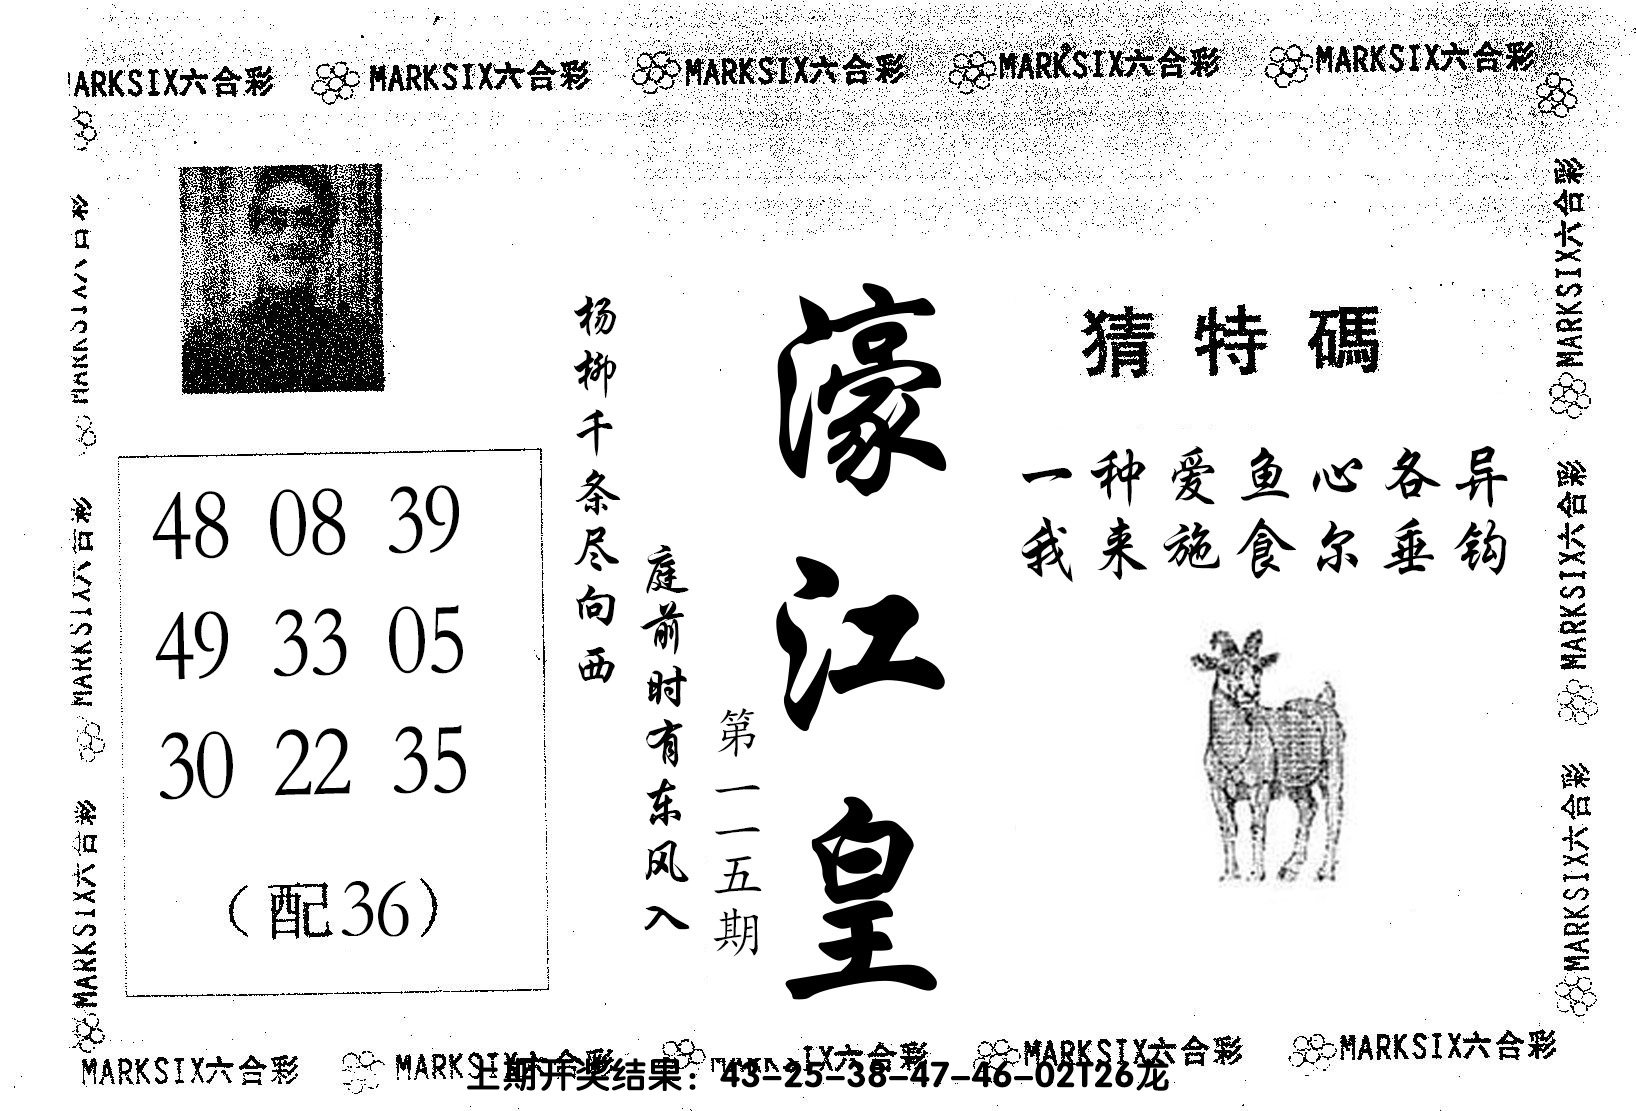 MARKSIX六合彩 MARKSIX六合彩 MARKSIX六合彩 MARKSIX六合彩 MARKSIX六合彩
猜特碼
一种爱鱼心各异
我来施食尔垂钩
濠江皇
第一一五期
庭前时有东风入
杨柳千条尽向西
48 08 39
49 33 05
30 22 35
（配36）
MARKSIX六合彩
MARKSIX六合彩
MARKSIX六合彩
MARKSIX六合彩
MARKSIX六合彩
MARKSIX六合彩
MARKSIX六合彩 MARKSIX六合彩 MARKSIX六合彩 MARKSIX六合彩
上期开奖结果：43-25-38-47-46-02T26龙